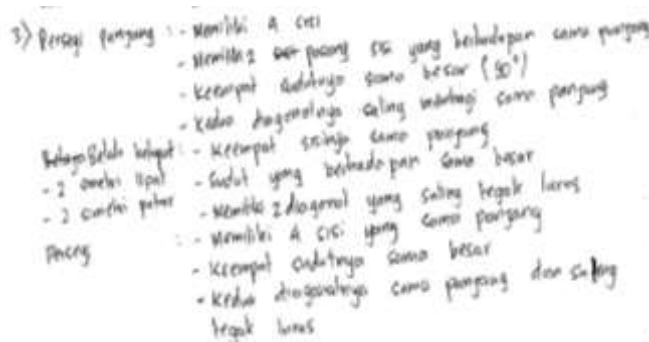 3) Persegi Panjang : - Memiliki 4 sisi
- Memiliki 2 pasang sisi yang berhadapan sama panjang
- Keempat sudutnya sama besar (90°)
- Kedua diagonalnya saling membagi sama panjang
Belah ketupat : - Keempat sisinya sama panjang
- 2 simetri lipat - Sudut yang berhadapan sama besar
- 2 simetri putar - Memiliki 2 diagonal yang saling tegak lurus
Persegi : - Memiliki 4 sisi yang sama panjang
- Keempat sudutnya sama besar
- Kedua diagonalnya sama panjang dan saling
tegak lurus